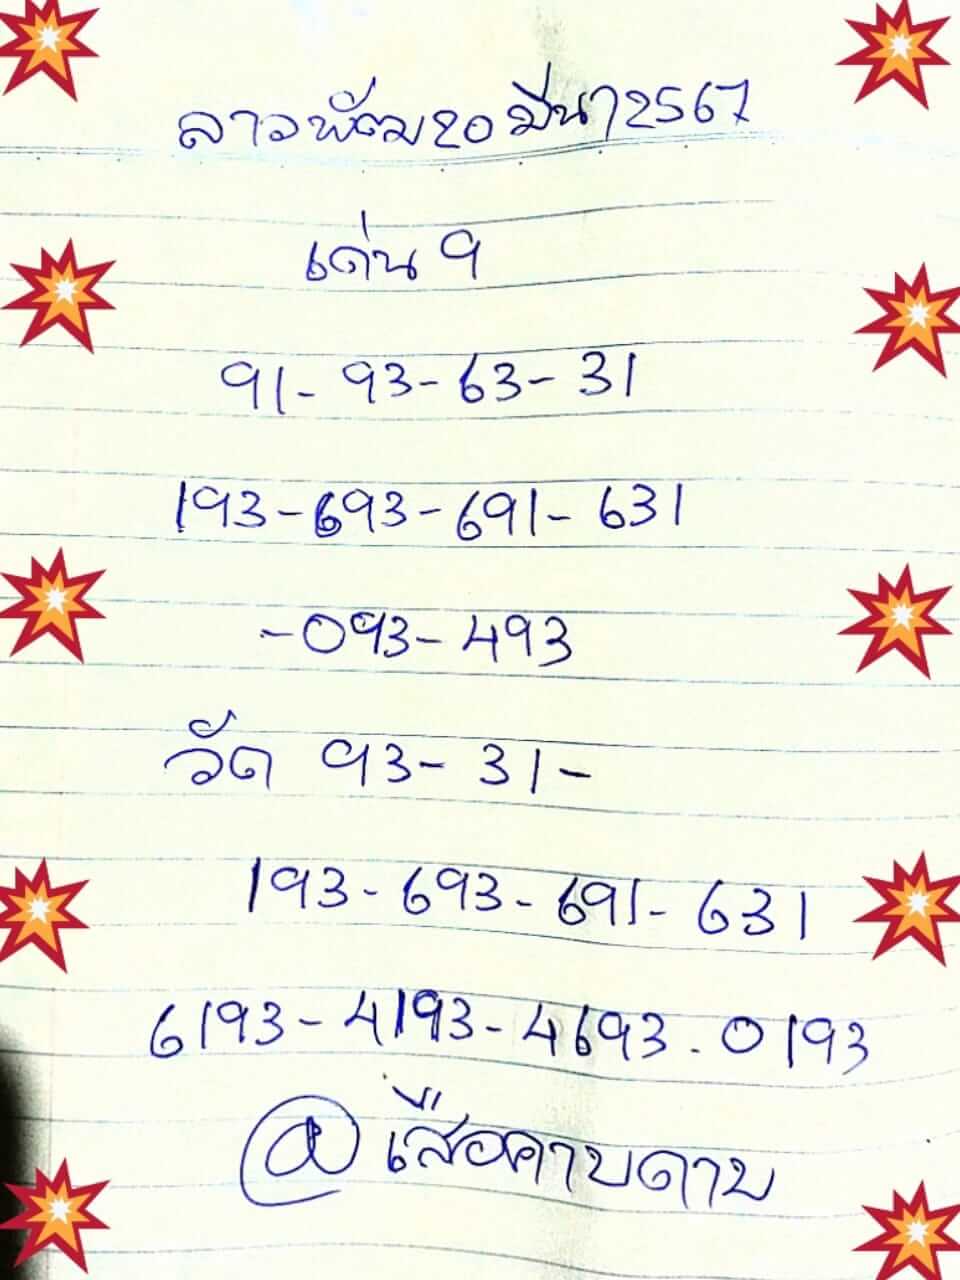 ลาวพัฒ20 มีนา2567
เด่น 9
91- 93- 63- 31
193-693-691- 631
-093- 493
วัด 93- 31-
193- 693- 691- 631
6193- 4193- 4693. 0193
@เสือคาบดาบ